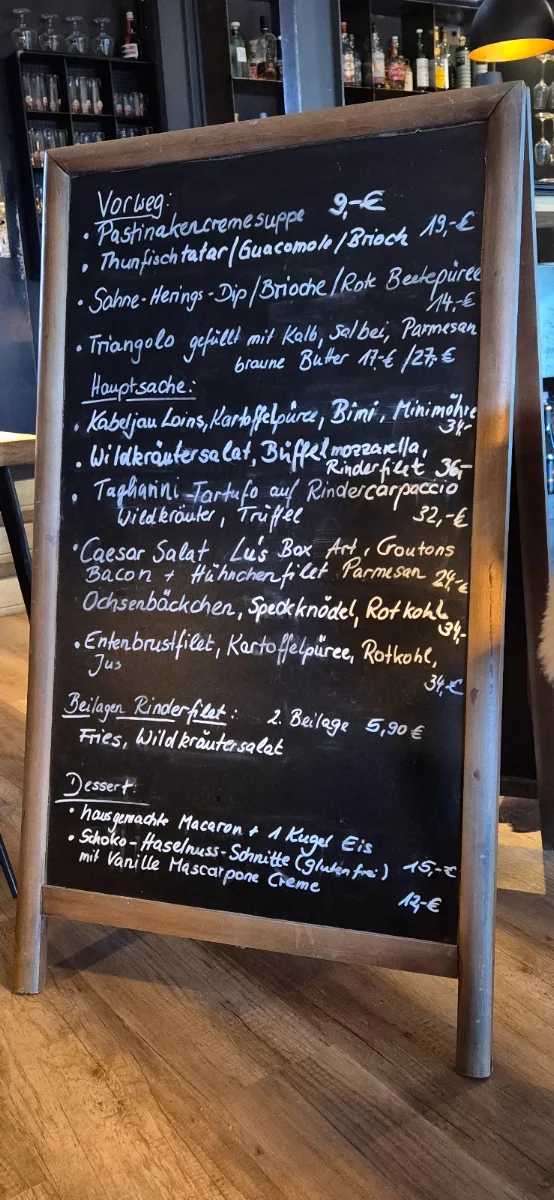 Vorweg:
• Pastinakencremesuppe 9,-€
• Thunfischtatar/Guacomole/Brioch 19,-€
• Sahne-Herings-Dip/Brioche/Rote Beetepüree
14,-€
• Triangolo gefüllt mit Kalb, Salbei, Parmesan
braune Butter 17.-€ /27,-€
Hauptsache:
• Kabeljau Loins, Kartoffelpüree, Bimi, Minimöhre
34,-
• Wildkräutersalat, Büffelmozzarella,
Rinderfilet 36,-
• Tagliarini Tartufo auf Rindercarpaccio
Wildkräuter, Trüffel 32,-€
• Caesar Salat Lu's Box Art, Croutons
Bacon + Hühnchenfilet Parmesan 24,-€
Ochsenbäckchen, Speckknödel, Rotkohl
34,-
• Entenbrustfilet, Kartoffelpüree, Rotkohl,
Jus
34,-€
Beilagen Rinderfilet: 2. Beilage 5,90 €
Fries, Wildkräutersalat
Dessert:
• hausgemachte Macaron + 1 Kugel Eis
• Schoko-Haselnuss-Schnitte (glutenfrei) 15,-€
mit Vanille Mascarpone Creme
12,-€